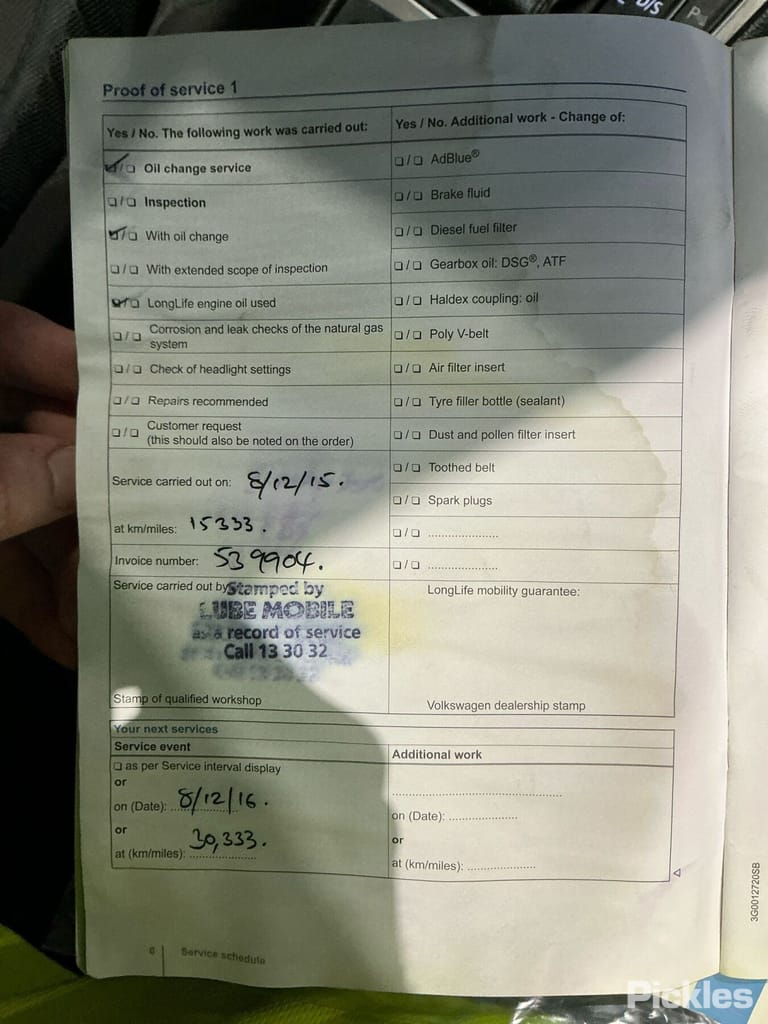 D/S
P
Proof of service 1
Yes / No. The following work was carried out:
☑/❏ Oil change service
❏/❏ Inspection
☑/❏ With oil change
❏/❏ With extended scope of inspection
☑/❏ LongLife engine oil used
❏/❏ Corrosion and leak checks of the natural gas
system
❏/❏ Check of headlight settings
❏/❏ Repairs recommended
❏/❏ Customer request
(this should also be noted on the order)
Service carried out on: 8/12/15.
at km/miles: 15333.
Invoice number: 539904.
Service carried out by
Stamped by
LUBE MOBILE
as a record of service
Call 13 30 32
Stamp of qualified workshop
Yes / No. Additional work - Change of:
❏/❏ AdBlue®
❏/❏ Brake fluid
❏/❏ Diesel fuel filter
❏/❏ Gearbox oil: DSG®, ATF
❏/❏ Haldex coupling: oil
❏/❏ Poly V-belt
❏/❏ Air filter insert
❏/❏ Tyre filler bottle (sealant)
❏/❏ Dust and pollen filter insert
❏/❏ Toothed belt
❏/❏ Spark plugs
❏/❏ .....................
❏/❏ .....................
LongLife mobility guarantee:
Volkswagen dealership stamp
Your next services
Service event
❏ as per Service interval display
or
on (Date): 8/12/16.
or
at (km/miles): 30,333.
Additional work
on (Date): .....................
or
at (km/miles): .....................
3G0012720SB
6 Service schedule
Pickles